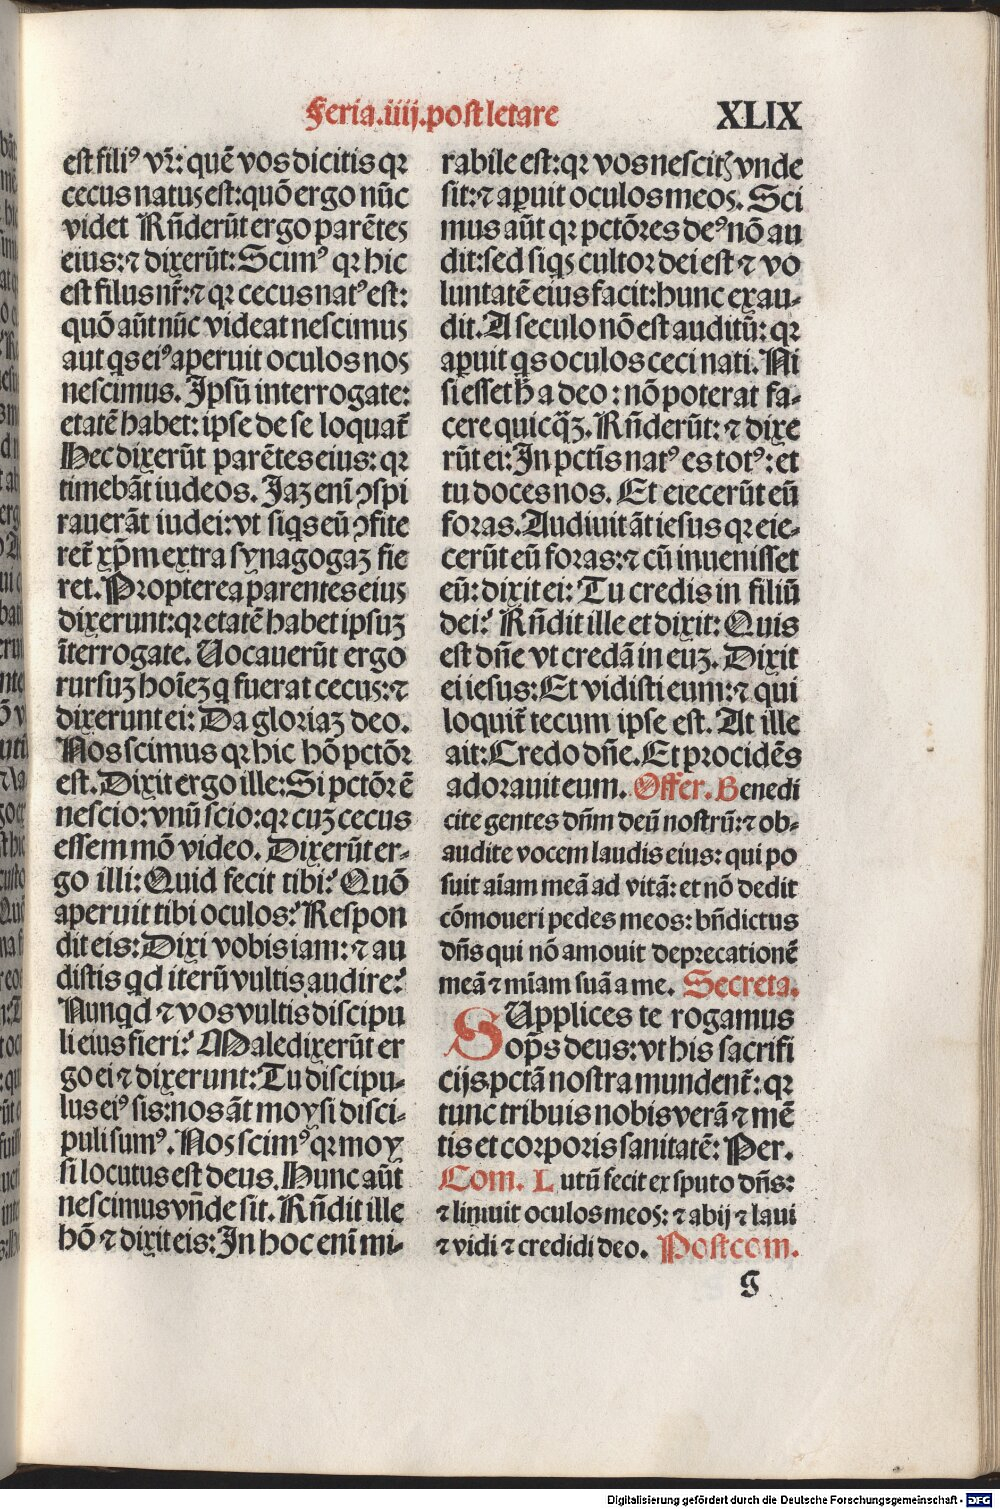 Feria.iiij.post letare
XLIX
est filiꝰ vr̄: quē vos dicitis qꝛ
cecus natus est: quō ergo nūc
videt Rn̄derūt ergo parētes
eius: ⁊ dixerūt: Scimꝰ qꝛ hic
est filus nr̄: ⁊ qꝛ cecus natꝰ est:
quō aūt nūc videat nescimus
aut qͥs eiꝰ aperuit oculos nos
nescimus. Ipsū interrogate:
etatē habet: ipse de se loquat̄
Hec dixerūt parētes eius: qꝛ
timebāt iudeos. Jaꝫ enī ↄspi
rauerāt iudei: vt siqͥs eū ↄfite
ret̄ xp̄m extra synagogaꝫ fie
ret. Propterea parentes eius
dixerunt: qꝛ etatē habet ipsuꝫ
īterrogate. Uocauerūt ergo
rursuꝫ hoīeꝫ q fuerat cecus: ⁊
dixerunt ei: Da gloriaꝫ deo.
Nos scimus qꝛ hic hō pctōr
est. Dixit ergo ille: Si pctōr ē
nescio: vnū scio: qꝛ cuꝫ cecus
essem mō video. Dixerūt er-
go illi: Quid fecit tibi? Quō
aperuit tibi oculos? Respon
dit eis: Dixi vobis iam: ⁊ au
distis qd iterū vultis audire?
Nunqd ⁊ vos vultis discipu
li eius fieri? Maledixerūt er
go ei ⁊ dixerunt: Tu discipu-
lus eiꝰ sis: nos āt moysi disci-
puli sumꝰ. Nos scimꝰ qꝛ moy
si locutus est deus. Hunc aūt
nescimus vn̄de sit. Rn̄dit ille
hō ⁊ dixit eis: In hoc enī mi-
rabile est: qꝛ vos nescitꝭ vnde
sit: ⁊ aꝑuit oculos meos. Sci
mus aūt qꝛ pctōres deꝰ nō au
dit: sed siqs cultor dei est ⁊ vo
luntatē eius facit: hunc exau-
dit. A seculo nō est auditū: qꝛ
aꝑuit qͥs oculos ceci nati. Ni
si esset h̄ a deo: nō poterat fa-
cere quicq̄ꝫ. Rn̄derūt: ⁊ dixe
rūt ei: In pctīs natꝰ es totꝰ: et
tu doces nos. Et eiecerūt eū
foras. Audiuit āt iesus qꝛ eie-
cerūt eū foras: ⁊ cū inuenisset
eū: dixit ei: Tu credis in filiū
dei? Rn̄dit ille et dixit: Quis
est dn̄e vt credā in euꝫ. Dixit
ei iesus: Et vidisti eum: ⁊ qui
loquit̄ tecum ipse est. At ille
ait: Credo dn̄e. Et procidēs
adorauit eum. Offer. Benedi
cite gentes dn̄m deū nostrū: ⁊ ob-
audite vocem laudis eius: qui po
suit aīam meā ad vitā: et nō dedit
cōmoueri pedes meos: bn̄dictus
dn̄s qui nō amouit deprecationē
meā ⁊ mīam suā a me. Secreta.
SUpplices te rogamus
op̄s deus: vt his sacrifi
cijs pctā nostra mundent̄: qꝛ
tunc tribuis nobis verā ⁊ mē
tis et corporis sanitatē: Per.
Com. Lutū fecit ex sputo dn̄s:
⁊ liniuit oculos meos: ⁊ abij ⁊ laui
⁊ vidi ⁊ credidi deo. Postcom.
g
Digitalisierung gefördert durch die Deutsche Forschungsgemeinschaft - DFG